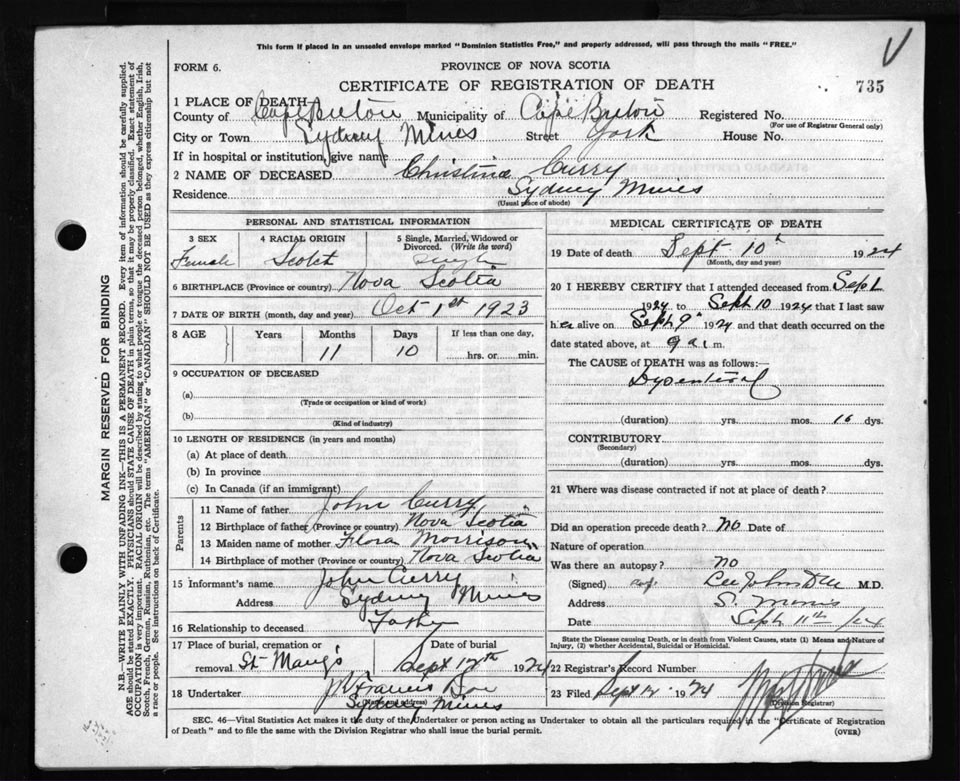 This form if placed in an unsealed envelope marked "Dominion Statistics Free," and properly addressed, will pass through the mails "FREE."
V
FORM 6.
PROVINCE OF NOVA SCOTIA
CERTIFICATE OF REGISTRATION OF DEATH
735
1 PLACE OF DEATH
County of Cape Breton Municipality of Cape Breton Registered No.
(For use of Registrar General only)
City or Town Sydney Mines Street York House No.
If in hospital or institution, give name
2 NAME OF DECEASED Christina Curry
Residence Sydney Mines
(Usual place of abode)
PERSONAL AND STATISTICAL INFORMATION
3 SEX Female
4 RACIAL ORIGIN Scotch
5 Single, Married, Widowed or Divorced. (Write the word) Single
6 BIRTHPLACE (Province or country) Nova Scotia
7 DATE OF BIRTH (month, day and year) Oct 1st 1923
8 AGE Years Months Days If less than one day,
11 10 hrs. or min.
9 OCCUPATION OF DECEASED
(a)
(Trade or occupation or kind of work)
(b)
(Kind of industry)
10 LENGTH OF RESIDENCE (in years and months)
(a) At place of death
(b) In province
(c) In Canada (if an immigrant)
Parents
11 Name of father John Curry
12 Birthplace of father (Province or country) Nova Scotia
13 Maiden name of mother Flora Morrison
14 Birthplace of mother (Province or country) Nova Scotia
15 Informant's name John Curry
Address Sydney Mines
16 Relationship to deceased Father
17 Place of burial, cremation or removal St Mary's
Date of burial Sept 12th 1924
18 Undertaker J W Francis
Sydney Mines
(Name and address)
MEDICAL CERTIFICATE OF DEATH
19 Date of death Sept 10th 1924
(Month, day and year)
20 I HEREBY CERTIFY that I attended deceased from Sept
1924 to Sept 10 1924 that I last saw
her alive on Sept 9th 1924 and that death occurred on the
date stated above, at 9 a.m.
The CAUSE of DEATH was as follows:—
(duration) yrs. mos. 16 dys.
CONTRIBUTORY
(Secondary)
(duration) yrs. mos. dys.
21 Where was disease contracted if not at place of death?
Did an operation precede death? No Date of
Nature of operation
Was there an autopsy? No
(Signed) M.D.
Address S. Mines
Date Sept 11th /24
State the Disease causing Death, or in death from Violent Causes, state (1) Means and Nature of Injury, (2) whether Accidental, Suicidal or Homicidal.
22 Registrar's Record Number
23 Filed Sept 12 1924
(Division Registrar)
SEC. 46—Vital Statistics Act makes it the duty of the Undertaker or person acting as Undertaker to obtain all the particulars required in the "Certificate of Registration
of Death" and to file the same with the Division Registrar who shall issue the burial permit.
(OVER)
MARGIN RESERVED FOR BINDING
N.B.—WRITE PLAINLY WITH UNFADING INK—THIS IS A PERMANENT RECORD. Every item of information should be carefully supplied.
AGE should be stated EXACTLY. PHYSICIANS should STATE CAUSE OF DEATH in plain terms, so that it may be properly classified. Exact statement of
OCCUPATION is very important. RACIAL ORIGIN will be described by stating to what people or tongue the deceased person belonged, whether English, Irish,
Scotch, French, German, Russian, Ruthenian, etc. The terms "AMERICAN" or "CANADIAN" SHOULD NOT BE USED as they express citizenship but not
a race or people. See instructions on back of Certificate.